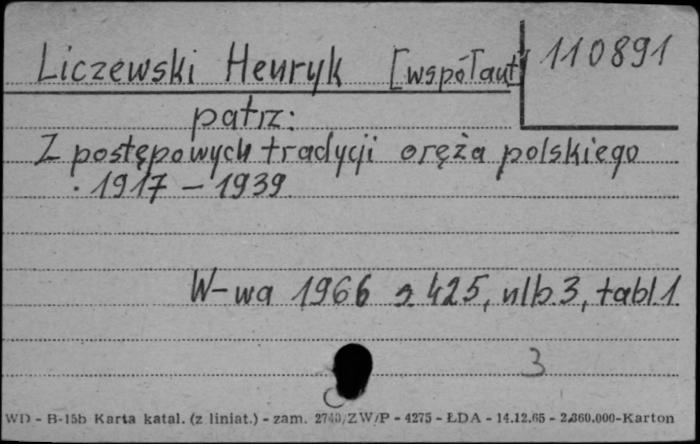 Liczewski Henryk [współaut]
110891
patrz:
Z postępowych tradycji oręża polskiego
1917 - 1939
W-wa 1966 s 425, nlb 3, tabl 1
3
WD - B-15b Karta katal. (z liniat.) - zam. 2740/ZW/P - 4275 - ŁDA - 14.12.65 - 2.360.000-Karton